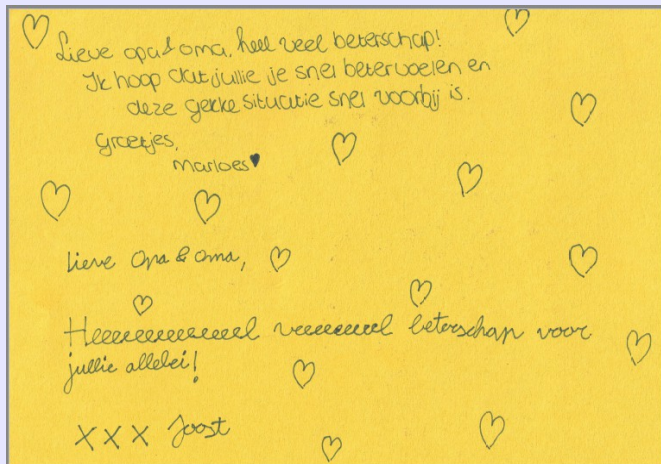 Lieve opa & oma, heel veel beterschap!
Ik hoop dat jullie je snel beter voelen en
deze gekke situatie snel voorbij is.
Groetjes,
Marloes
Lieve Opa & Oma,
Heeeeeeeeeeeel veeeeeeeel beterschap voor
jullie allebei!
XXX Joost